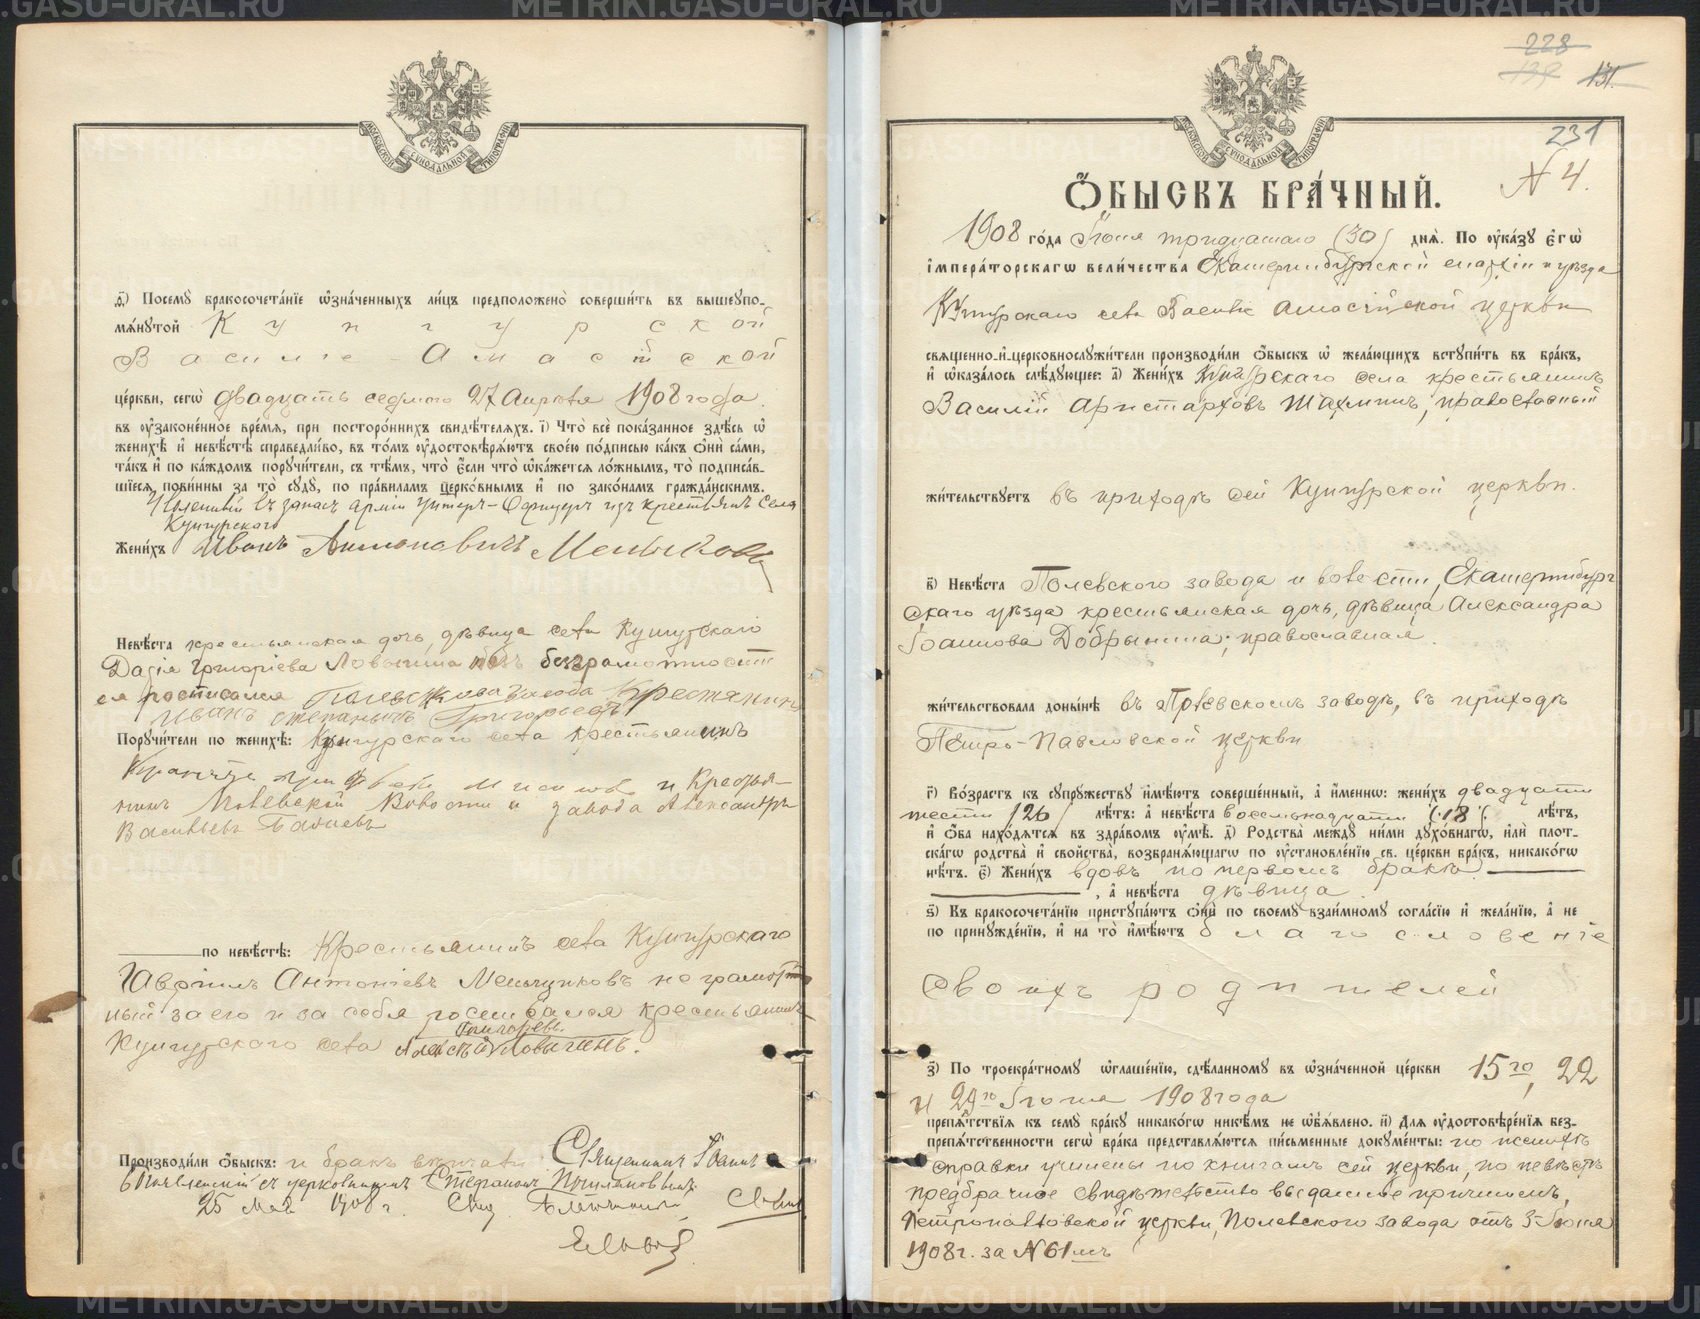 МОСКОВСКОЙ СѴНОДАЛЬНОЙ ТИПОГРАФІИ
д҃і) Посемꙋ̀ бракосочета́нїе ѡ҆зна́ченныхъ ли́цъ предположено̀ соверши́ть въ вышеꙋпо-
мѧ́нꙋтой Кунгурской
Василіе-Амасійской
це́ркви, сегѡ̀ двадцать седьмого 27 Апреля 1908 года.
въ ᲂу҆зако́ненное вре́мѧ, при посторо́ннихъ свидѣ́телѧхъ. і҃) Что̀ всѐ пока́занное здѣ́сь ѡ҆
женихѣ̀ и҆ невѣ́стѣ справедли́во, въ то́мъ ᲂу҆достовѣрѧ́ютъ свое́ю по́дписью ка́къ ѻ҆нѝ са́ми,
та́къ и҆ по ка́ждомъ порꙋчи́тели, съ тѣ́мъ, что̀ є҆́сли что̀ ѡ҆ка́жетсѧ ло́жнымъ, то̀ подписа́в-
шїесѧ пови́нны за то̀ сꙋдꙋ̀, по пра́виламъ церко́внымъ и҆ по зако́намъ гражда́нскимъ.
въ запас армiи Унтеръ-Офицеръ изъ крестьянъ Села
Кунгурского
Жени́хъ Иванъ Меньшиковъ
Невѣ́ста крестьянская дочь, дѣвица села Кунгурскаго
Дарія Григоріева Ловыгина безграмотности
ея росписался Полевскова завода Крестянинъ
Иванъ Степанычъ Григорьевъ
Порꙋчи́тели по женихѣ̀: Кунгурскаго села крестьянинъ
и Кресья-
нинъ Полевской Волости и завода Александръ
Васильевъ
по невѣ́стѣ: Крестьянинъ села Кунгурскаго
Гавріилъ Антоніевъ Меньшиковъ не грамот-
ный за его и за себя росписался крестьянинъ
Григорьевъ.
Кунгурскаго села Алексѣй Ловыгинъ.
Производи́ли ѻ҆́быскъ: и бракъ вѣнчали: Священникъ Іоаннъ
Богоявленскій съ церковникомъ Стефаномъ
25 мая 1908 г.
228
139
131
231
МОСКОВСКОЙ СѴНОДАЛЬНОЙ ТИПОГРАФІИ
N 4.
Ѻ҆́БЫСКЪ БРА́ЧНЫЙ.
1908 го́да Іюня тридцатаго (30) днѧ̀. По ᲂу҆ка́зꙋ є҆гѡ̀
і҆мпера́торскагѡ вели́чества Екатеринбургской епархіи и уѣзда
Кунгурскаго села Василіе Амасійской церкви
свѧще́нно-и҆-церковнослꙋжи́тели производи́ли ѻ҆́быскъ ѡ҆ жела́ющихъ встꙋпи́ть въ бра́къ,
и҆ ѡ҆каза́лось слѣ́дꙋющее: а҃) Жени́хъ Кунгурскаго села крестьянинъ
Василій Аристарховъ Шахминъ, православный
жи́тельствꙋетъ въ приходѣ сей Кунгурской церкви.
в҃) Невѣ́ста Полевского завода и волости, Екатеринбург
скаго уѣзда крестьянская дочь, дѣвица Александра
Іоаннова Добрынина, православная.
жи́тельствовала доны́нѣ въ Полевскомъ заводѣ, въ приходѣ
Петро-Павловской церкви
г҃) Во́зрастъ къ сꙋпрꙋ́жествꙋ и҆мѣ́ютъ соверше́нный, а҆ и҆́меннѡ: жени́хъ двадцати
шести (26) лѣ́тъ: а҆ невѣ́ста восемьнадцати (18) лѣ́тъ,
и҆ ѻ҆́ба нахо́дѧтсѧ въ здра́вомъ ᲂу҆мѣ̀. д҃) Родства̀ междꙋ̀ ни́ми дꙋхо́внагѡ, и҆лѝ плот-
ска́гѡ родства̀ и҆ сво́йства, возбранѧ́ющагѡ по ᲂу҆становле́нїю св. це́ркви бра́къ, никако́гѡ
нѣ́тъ. є҃) Жени́хъ вдовъ по первомъ бракѣ
, а҆ невѣ́ста дѣвица
ѕ҃) Къ бракосочета́нїю пристꙋпа́ютъ ѻ҆нѝ по своемꙋ̀ взаи́мномꙋ согла́сїю и҆ жела́нїю, а҆ не
по принꙋжде́нїю, и҆ на то̀ и҆мѣ́ютъ благословеніе
своихъ родителей
з҃) По троекра́тномꙋ ѡ҆глаше́нїю, сдѣ́ланномꙋ въ ѡ҆зна́ченной це́ркви 15го, 22
и 29го Іюня 1908 года
препѧ́тствїѧ къ семꙋ̀ бра́кꙋ никако́гѡ никѣ́мъ не ѡ҆б̾ѧ́влено. и҃) Для ᲂу҆достовѣре́нїѧ без-
препѧ́тственности сегѡ̀ бра́ка представлѧ́ютсѧ пи́сьменные докꙋме́нты: по женихѣ
справки учинены по книгамъ сей церкви, по невѣстѣ
предбрачное свидѣтельство выданное причтомъ,
Петропавловской церкви, Полевского завода отъ 3 Іюня
1908 г. за N 61 мъ
METRIKI.GASU-URAL.RU